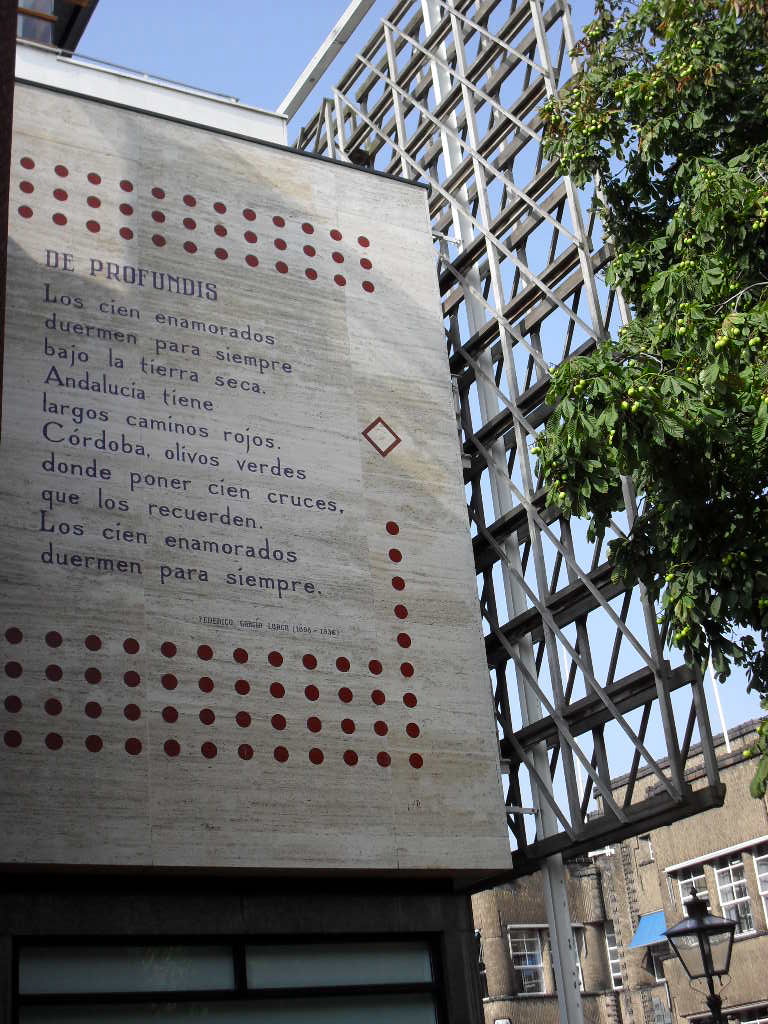 DE PROFUNDIS
Los cien enamorados
duermen para siempre
bajo la tierra seca.
Andalucía tiene
largos caminos rojos.
Córdoba, olivos verdes
donde poner cien cruces,
que los recuerden.
Los cien enamorados
duermen para siempre.
FEDERICO GARCÍA LORCA (1898 - 1936)